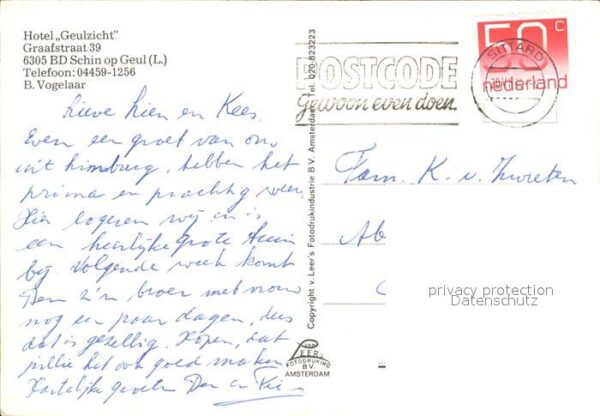 Hotel „Geulzicht"
Graafstraat 39
6305 BD Schin op Geul (L.)
Telefoon: 04459-1256
B. Vogelaar
Lieve Lien en Kees,
Even een groet van ons
uit Limburg, hebben het
prima en prachtig weer.
Hier logeren wij en is
een heerlijke grote tuin
bij. Volgende week komt
Den z'n broer met vrouw
nog een paar dagen, dus
dat is gezellig. Hopen, dat
jullie het ook goed maken
Hartelijke groeten Den en
Copyright v. Leer's Fotodrukindustrie B.V. Amsterdam. Tel. 020-823223
POSTCODE
Gewoon even doen.
SITTARD
50 c
nederland
Fam. K. v.
Ab
privacy protection
Datenschutz
LEER
FOTODRUKIND
B.V.
AMSTERDAM